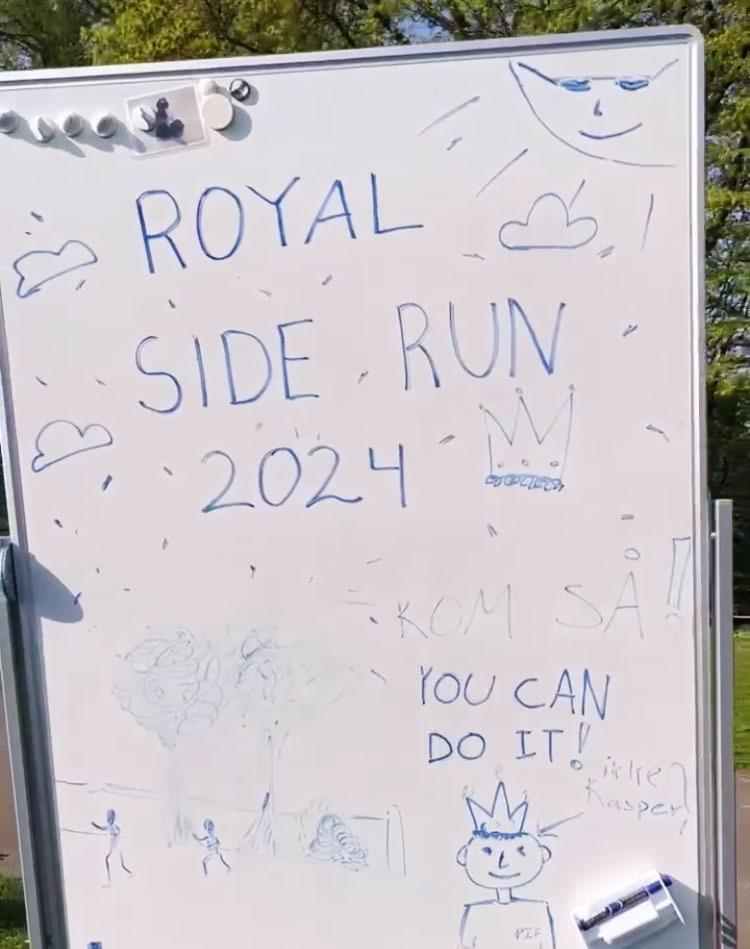 ROYAL
SIDE RUN
2024
KOM SÅ!
YOU CAN
DO IT!
ikke
Kasper